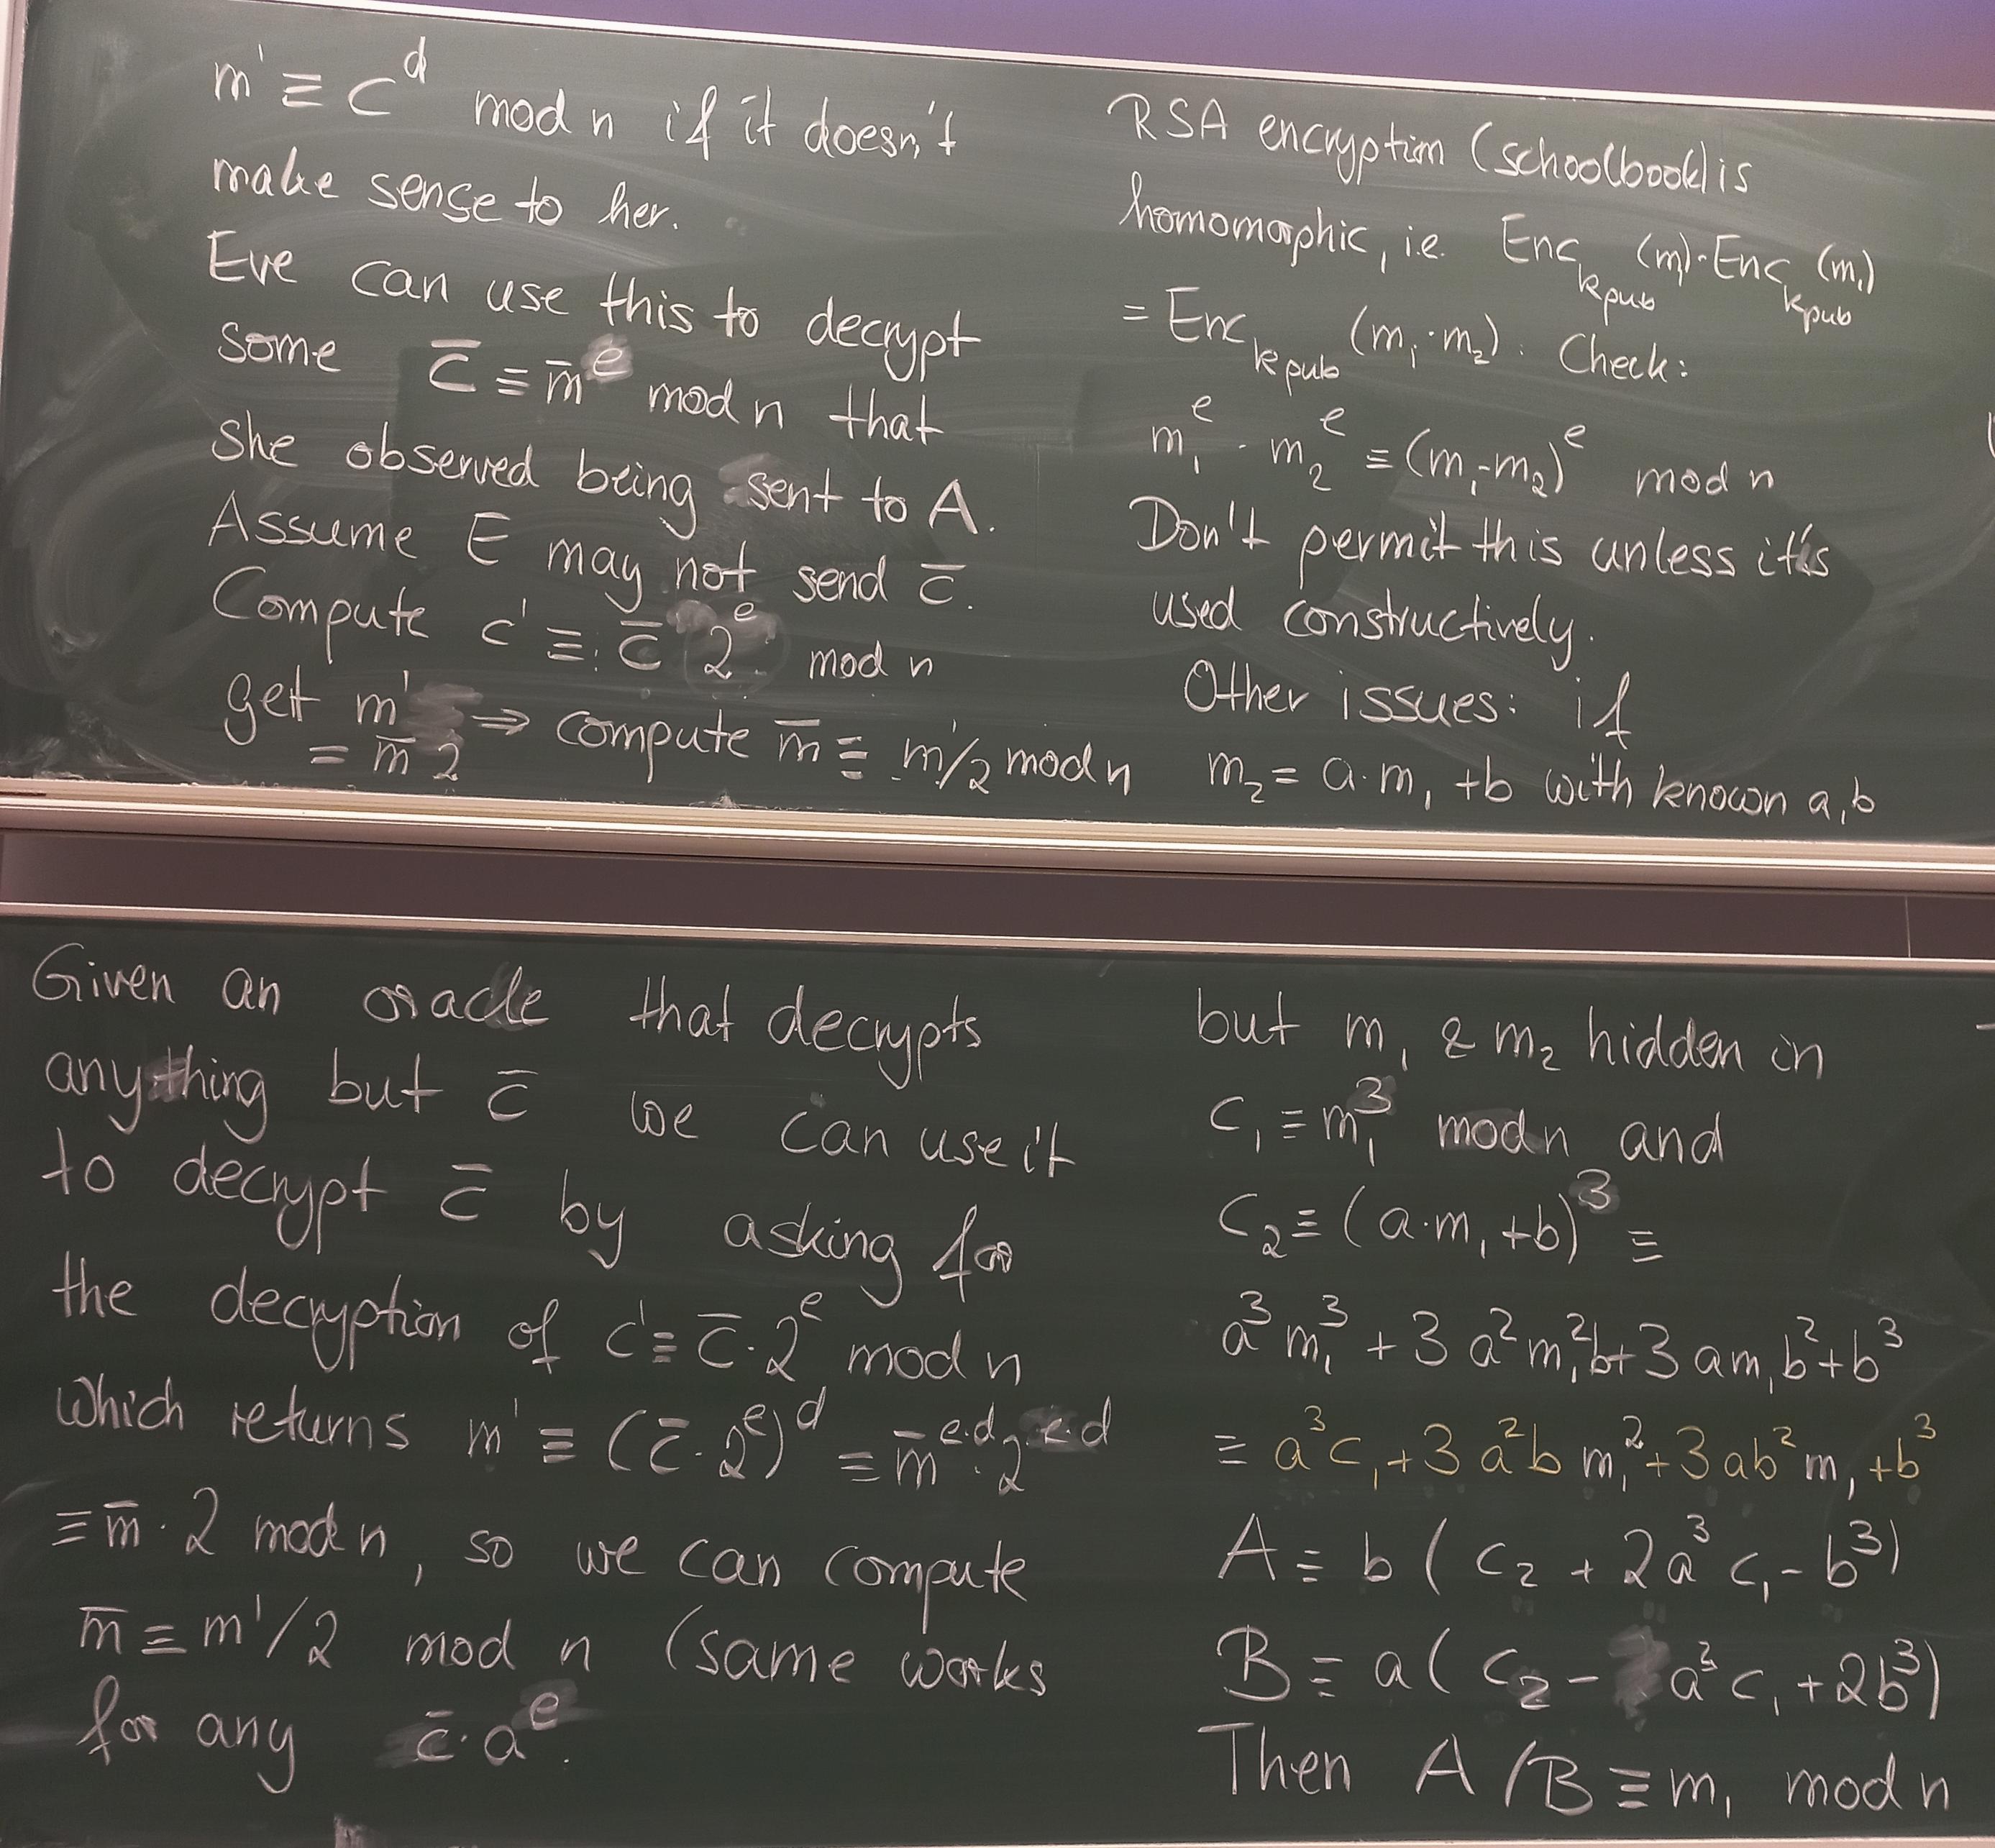 m' ≡ c^d mod n if it doesn't
make sense to her.
Eve can use this to decrypt
some c̄ ≡ m̄^e mod n that
she observed being sent to A.
Assume E may not send c̄.
Compute c' ≡ c̄ 2^e mod n
get m' ⇒ compute m̄ ≡ m'/2 mod n
= m̄ 2
RSA encryption (schoolbook) is
homomorphic, i.e. Enc_kpub (m₁)·Enc_kpub (m₁)
= Enc_kpub (m₁·m₂). Check:
m₁^e · m₂^e ≡ (m₁·m₂)^e mod n
Don't permit this unless it's
used constructively.
Other issues: if
m₂ = a·m₁ +b with known a,b
Given an oracle that decrypts
anything but c̄ we can use it
to decrypt c̄ by asking for
the decryption of c' ≡ c̄·2^e mod n
which returns m' ≡ (c̄·2^e)^d ≡ m̄^e·d·2^e·d
≡ m̄·2 mod n, so we can compute
m̄ ≡ m'/2 mod n (same works
for any c̄·a^e.
but m₁ & m₂ hidden in
c₁ ≡ m₁³ mod n and
c₂ ≡ (a·m₁+b)³ ≡
a³m₁³ + 3a²m₁²b+3am₁b²+b³
≡ a³c₁+3a²b m₁²+3ab²m₁+b³
A ≡ b(c₂ + 2a³c₁ - b³)
B ≡ a(c₂ - a³c₁ + 2b³)
Then A/B ≡ m₁ mod n